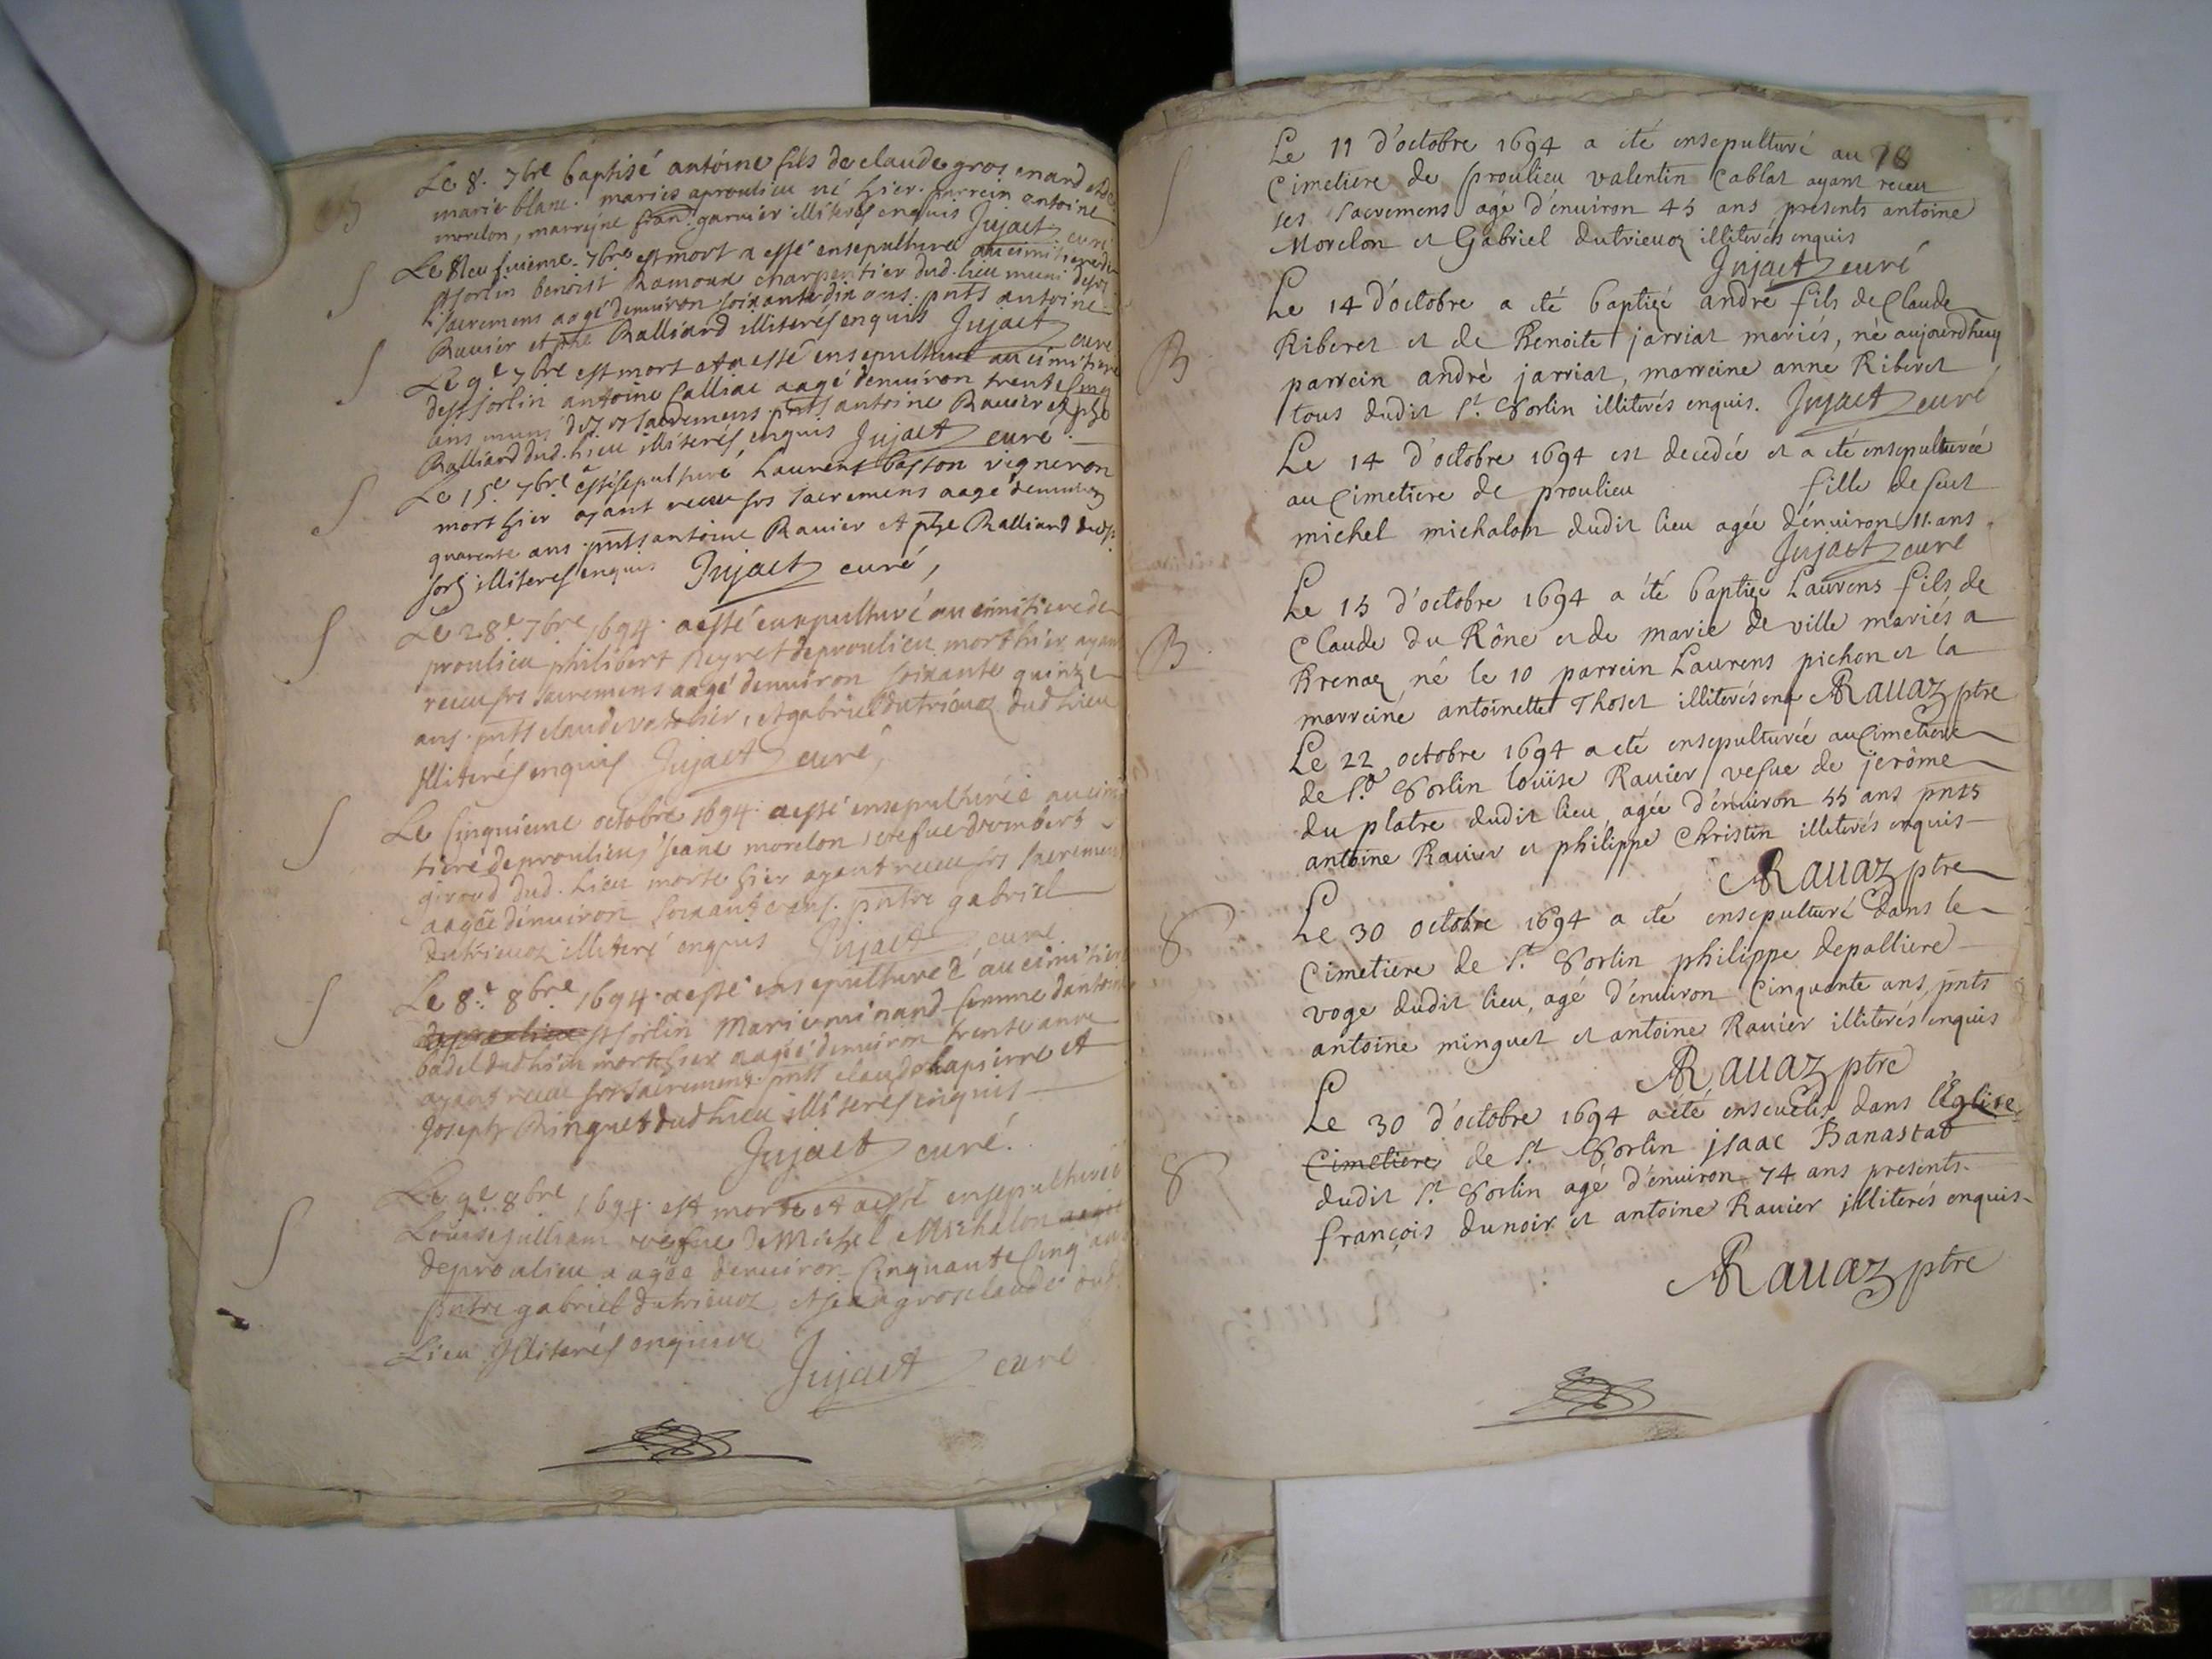 B
Le 8. 7bre baptisé antoine fils de claude gros enard et de
marie blanc. mariés a proulieu né hier. parrein antoine
morelon, marreyne fran. garnier illiterés enquis Jujaet curé
S
Le 8 7bre est mort a esté ensepulturé au cimitiere de
st sorlin benoist Ramoux charpentier dud. lieu muni de ses
sacremens aagé denuiron soixante dix ans. pnts antoine
Rauier et phe Ralliard illiterés enquis Jujaet curé
S
Le 9e 7bre est mort et a esté ensepulturé au cimitiere
de st sorlin antoine Calliac aagé denuiron trente cinq
ans muni de ses sacremens pnts antoine Rauier et phe
Ralliard dud. lieu illiterés enquis Jujaet curé
S
Le 15e. 7bre ensepulturé Laurent baston vigneron
mort hier ayant receu ses sacremens aagé denuiron
quarante ans. pnts antoine Rauier et phe Ralliard de st
sorl illiterés enquis Jujaet curé,
S
Le 28e. 7bre 1694. a esté ensepulturé au cimitiere de
proulieu philibert Reyret de proulieu mort hier ayant
receu ses sacremens aagé denuiron soixante quinze
ans. pnts claude, et gabriel dutrieuoz dud lieu
Illiterés enquis Jujaet curé,
S
Le cinquieme octobre 1694. a esté ensepulturée au cimi
tiere de proulieu Jeane morelon, vefue d'umbert
giroud dud. lieu morte hier ayant receu ses sacremens
aagée denuiron soixante ans. pntre gabriel
dutrieuoz illiteré enquis Jujaet curé
S
Le 8e. 8bre. 1694. a esté ensepulturée au cimitiere
de proulieu st sorlin Marie minand femme dantoine
badel dud lieu morte hier aagée denuiron trente ans
ayant receu ses sacremens. pnts claude lapierre et
Joseph Ringuet dud lieu illiterés enquis
Jujaet curé.
S
Le 9e 8bre 1694. est morte et a esté ensepulturée
Louise julliam vefue de Michel Michalon
de proulieu aagée denuiron cinquante cinq ans
pntre gabriel dutrieuoz et groxlaude dud.
Lieu Illiterés enquis
Jujaet curé
78
S
Le 11 d'octobre 1694 a été ensepulturé au
cimetiere de proulieu valentin Cablat ayant receu
ses sacremens agé d'enuiron 45 ans présents antoine
Morelon et Gabriel dutrieuoz illiterés enquis
Jujaet curé
B
Le 14 d'octobre a été baptizé andré fils de Claude
Riberet et de Benoite jarriat mariés, né aujourdhuy
parrein andré jarriat, marreine anne Riberet
tous dudit St. Sorlin illiterés enquis. Jujaet curé
Le 14 d'octobre 1694 est decedée et a été ensepulturée
au cimetiere de proulieu fille de feut
michel michalon dudit lieu agée d'enuiron 11. ans
Jujaet curé
B.
Le 15 d'octobre 1694 a été baptizé Laurens fils de
Claude du Rône et de marie de ville mariés a
Brenaz né le 10 parrein Laurens pichon et la
marreine antoinette Thoset illiterés enq Rauaz ptre
Le 22 octobre 1694 a eté ensepulturée au cimetiere
de St. Sorlin louïse Rauier vefue de jerôme
du platre dudit lieu, agée d'enuiron 55 ans pnts
antoine Rauier et philippe Christin illiterés enquis
Rauaz ptre
S
Le 30 octobre 1694 a été ensepulturé dans le
cimetiere de St. Sorlin philippe depalliere
voge dudit lieu, agé d'enuiron cinquante ans, pnts
antoine minguet et antoine Rauier illiterés enquis
Rauaz ptre
S
Le 30 d'octobre 1694 a été enseueli dans l'Eglise
Cimetiere de St. Sorlin jsaac Banastat
dudit St. Sorlin agé d'enuiron 74 ans presents
françois dunoir et antoine Rauier illiterés enquis
Rauaz ptre